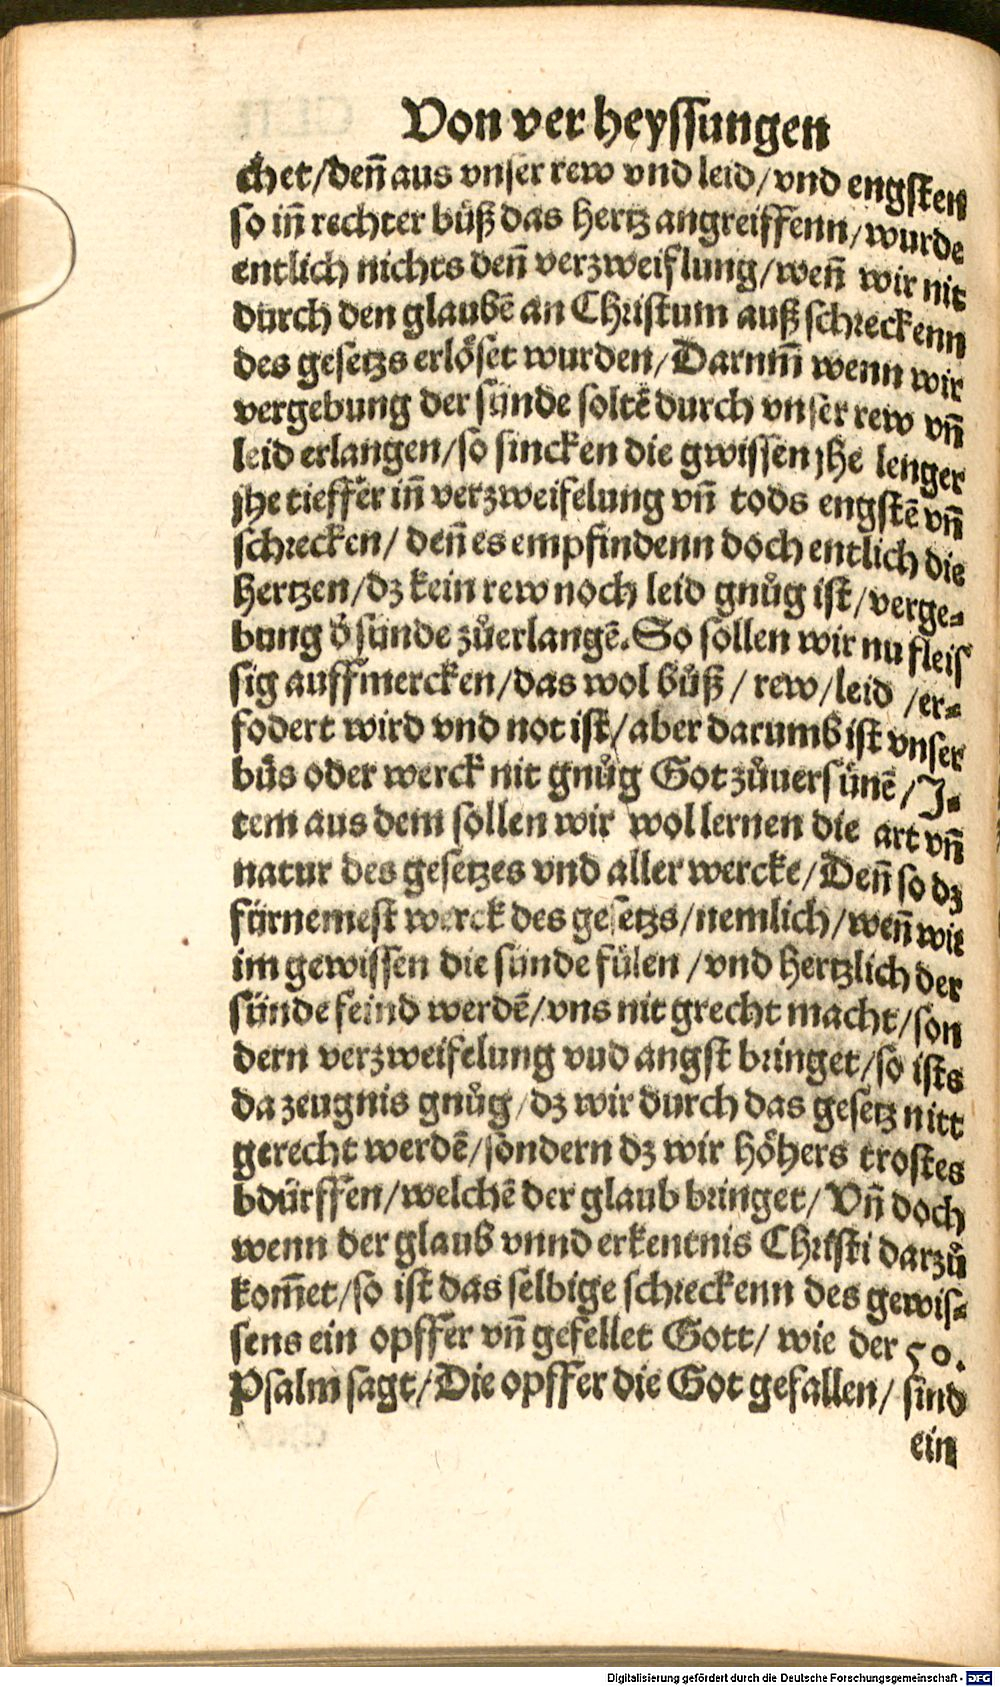 Von verheyssungen
chet/deñ aus vnser rew vnd leid/vnd engsten
so iñ rechter bůß das hertz angreiffenn/wurde
entlich nichts deñ verzweiflung/weñ wir nit
durch den glaubē an Christum auß schreckenn
des gesetzs erlöset wurden/Darum̄ wenn wir
vergebung der sünde soltē durch vnser rew vñ
leid erlangen/so sincken die gwissen jhe lenger
jhe tieffer iñ verzweifelung vñ tods engstē vñ
schrecken/ deñ es empfindenn doch entlich die
hertzen/dz kein rew noch leid gnůg ist/verge-
bung d̓ sünde zůerlangē. So sollen wir nu fleis
sig auffmercken/das wol bůß/ rew/leid /er-
fodert wird vnd not ist/aber darumb ist vnser
bůs oder werck nit gnůg Got zůuersünē/J-
tem aus dem sollen wir wol lernen die art vñ
natur des gesetzes vnd aller wercke/Deñ so dz
fürnemest werck des gesetzs/nemlich/weñ wir
im gewissen die sünde fülen /vnd hertzlich der
sünde feind werdē/vns nit grecht macht/son
dern verzweifelung vud angst bringet/so ists
da zeugnis gnůg/dz wir durch das gesetz nitt
gerecht werdē/sondern dz wir höhers trostes
bdürffen/welchē der glaub bringet/ Vñ doch
wenn der glaub vnnd erkentnis Christi darzů
kom̄et/so ist das selbige schreckenn des gewis-
sens ein opffer vñ gefellet Gott/ wie der 50.
Psalm sagt/Die opffer die Got gefallen/ sind
ein
Digitalisierung gefördert durch die Deutsche Forschungsgemeinschaft - DFG